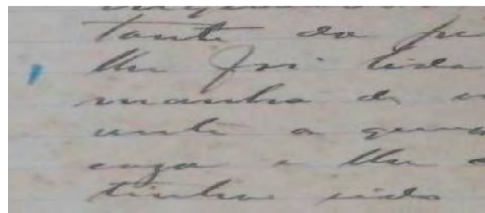 tante do pe
lhe foi lida
manha de
ante a quem
caza e lhe
tinha sido